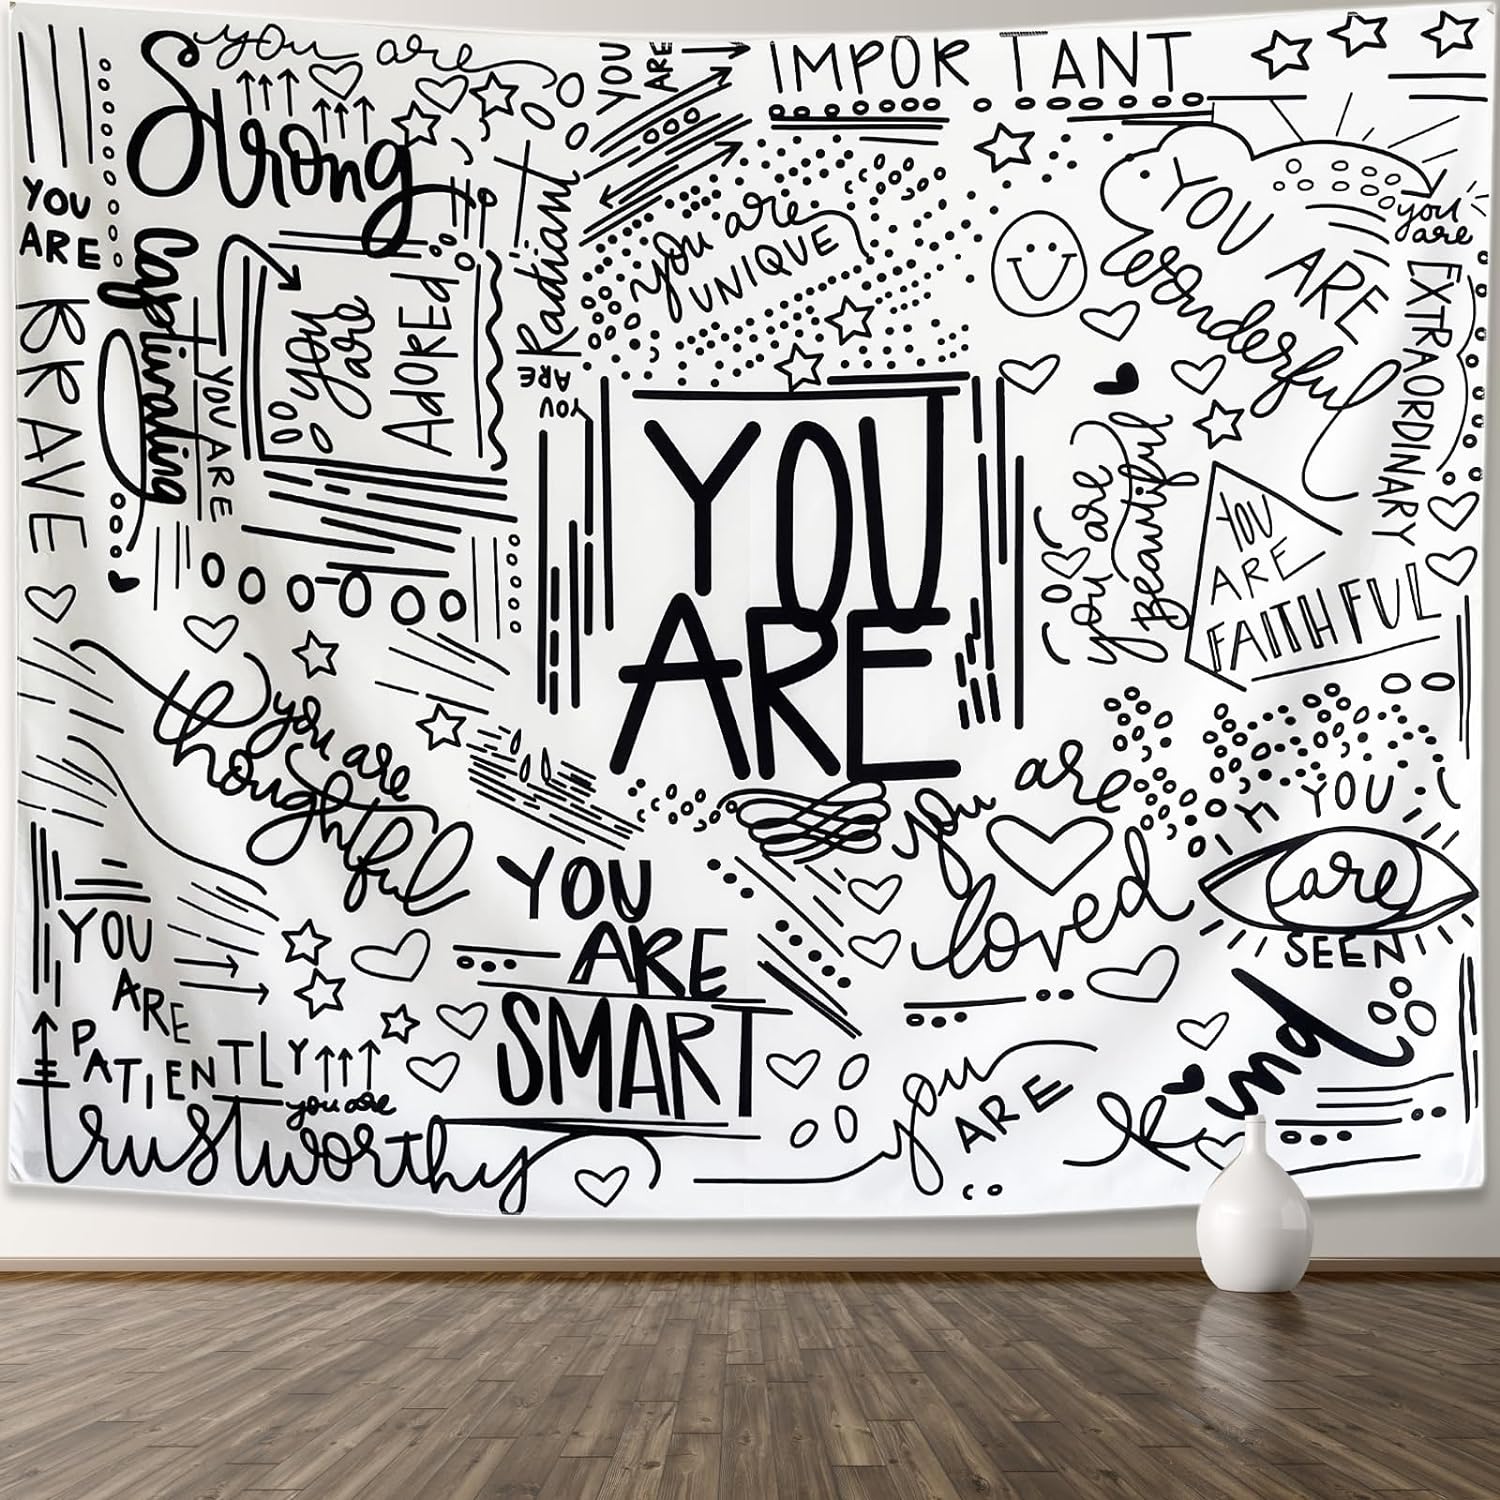 you are
Strong
YOU
ARE
IMPORTANT
YOU
ARE
BRAVE
Captivating
YOU ARE
you
are
ADOREd
Radiant
YOU
ARE
you are
UNIQUE
YOU ARE
Wonderful
you
are
EXTRAORDINARY
YOU
ARE
you are
Beautiful
YOU
ARE
FAITHFUL
you are
thoughtful
YOU
ARE
SMART
you are
loved
YOU
are
SEEN
YOU
ARE
PATIENTLY
you are
trustworthy
you
ARE
kind